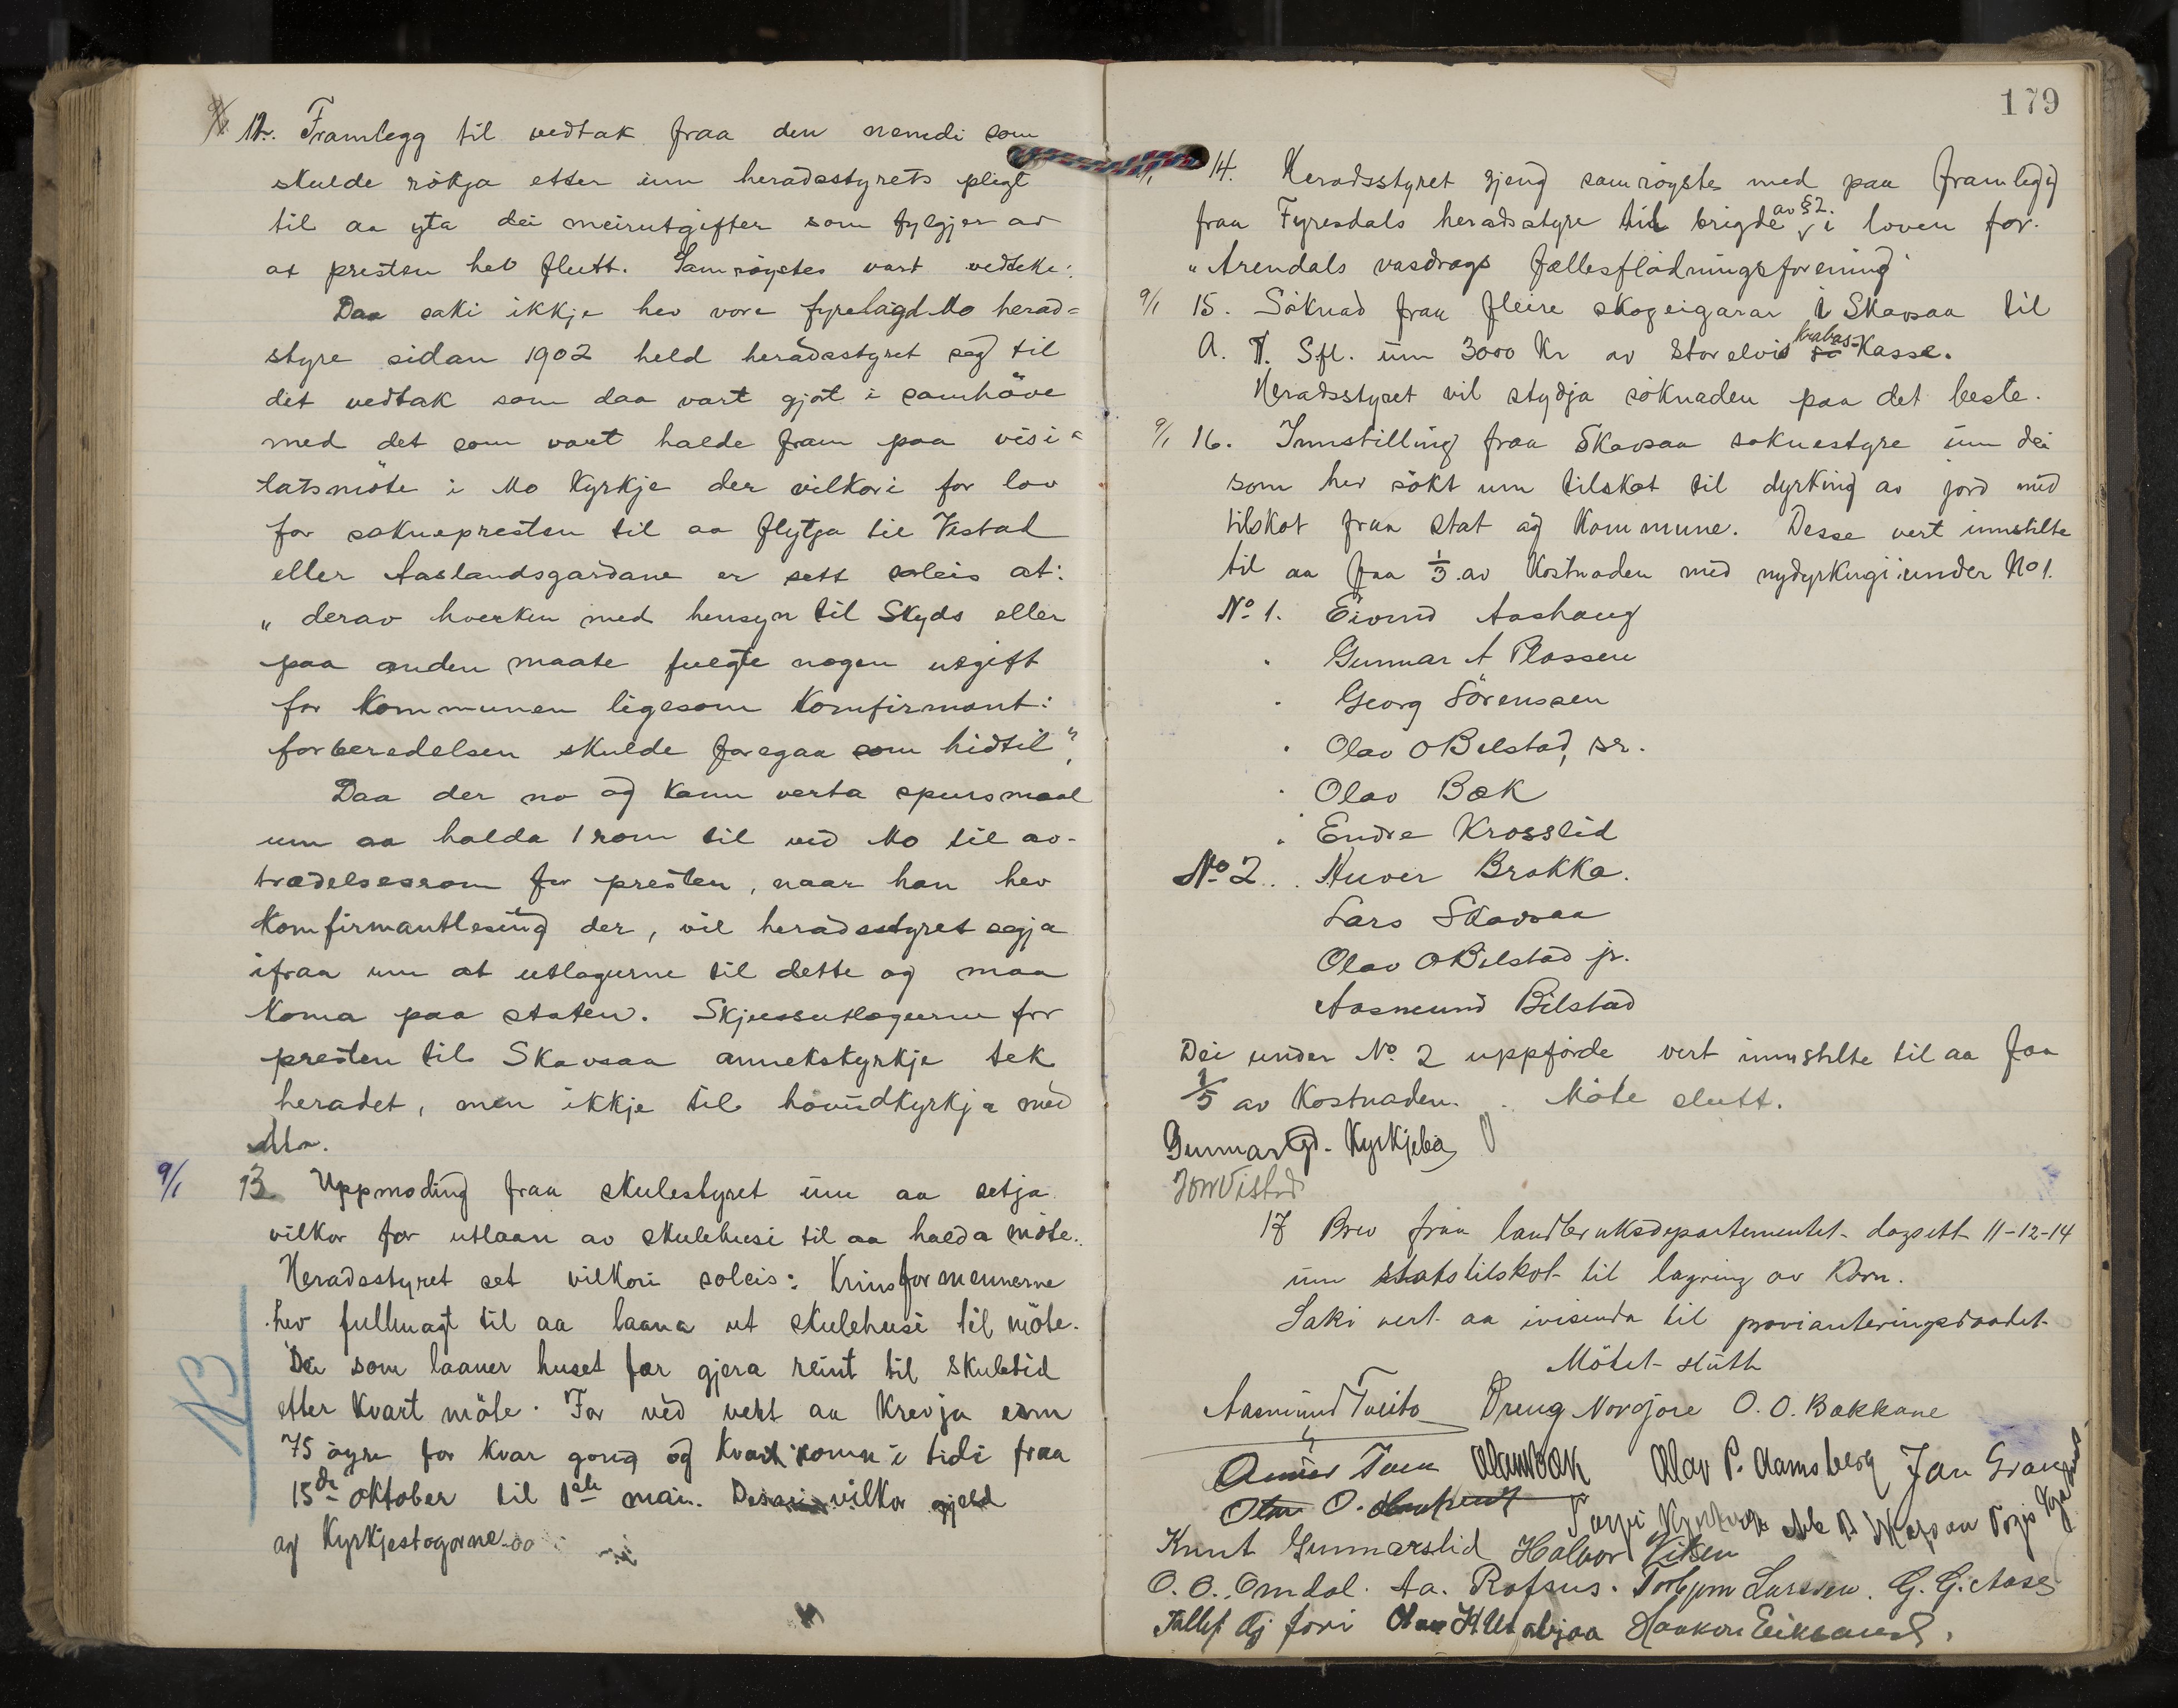 12. Framlegg til vedtak fraa den nemdi som
skulde rökja etter um heradsstyrets pligt
til aa yta dei meirutgifter som fylgjer av
at presten hev flutt. Samröystes vart vedteke:
Daa saki ikkje hev vore fyrelagd Mo herad=
styre sidan 1902 held heradsstyret seg til
det vedtak som daa vart gjört i samhöve
med det som vart halde fram paa visi=
tatsmöte i Mo Kyrkje der vilkori for lov
for soknepresten til aa flytja til Vistad
eller Aaslandsgardane er sett soleis at:
„ derav hverken med hensyn til Skyds eller
paa anden maate fulgte nogen utgift
for Kommunen ligesom Komfirmant:
forberedelsen skulde foregaa som hidtil".
Daa der no og kann verta spursmaal
um aa halda 1 rom til ved Mo til av-
trædelsesrom for presten, naar han hev
Komfirmantlesing der, vil heradsstyret segja
ifraa um at utlogurne til dette og maa
Koma paa staten. Skjussutlogurne for
presten til Skavsaa annekskyrkje tek
heradet, men ikkje til hovudkyrkja med
Mo.
9/1 13 Uppmoding fraa skulestyret um aa setja
vilkor for utlaan av skulehusi til aa halda möte.
Heradsstyret set vilkori soleis: Krinsformennerne
hev fullmagt til aa laana ut skulehusi til möte.
Dei som laaner huset fær gjera reint til skuletid
etter kvart möte. For ved vert aa krevja
75 öyre for kvar gong og kvart romm i tidi fraa
15de oktober til 1ste mai. vilkor gjeld
og Kyrkjestogorne
13
179
9/1 14. Heradsstyret gjeng samröystes med paa framlegg
fraa Fyresdals heradsstyre til brigde av §2. i loven for
„Arendals vasdrags fællesflödningsforening"
9/1 15. Söknad fraa fleire skogeigarar i Skavsaa til
A. T. Sfl. um 3000 Kr av Storelvis krabas-Kasse.
Heradsstyret vil stydja söknaden paa det beste.
9/1 16. Innstilling fraa Skavsaa soknestyre um dei
som hev sökt um tilskot til dyrking av jord med
tilskot fraa stat og Kommune. Desse vert innstilte
til aa faa 1/3 av Kostnaden med nydyrkingi under No 1.
No 1. Eivind Aashaug
Gunnar A Plassen
Georg Sörenssen
Olav O Bilstad, sr.
Olav Bæk
Endre Krosslid
No 2. Brokka.
Lars Skavsaa
Olav O Bilstad jr.
Aasmund Bilstad
Dei under No 2 uppförde vert innstilte til aa faa
1/5 av Kostnaden. Möte slutt.
Gunnar Gd. Kyrkjebö
Jon Vistad
17 Brev fraa landbruksdepartementet dagsett 11-12-14
um statstilskot til lagring av Korn.
Saki vert aa ivisenda til provianteringsraadet
Mötet slutt
Aasmund Tveito Dreng Nordjore O. O. Bakkane
Olav Bæk Olav P. Aamsberg Jan
Olav O.
Knut Gunnarslid Halvor Viken
O. O. Omdal. Aa. Rofsus. Torbjörn Larssen. G. G. Aase
Tallef Gj Jori Haakon Eiksund.